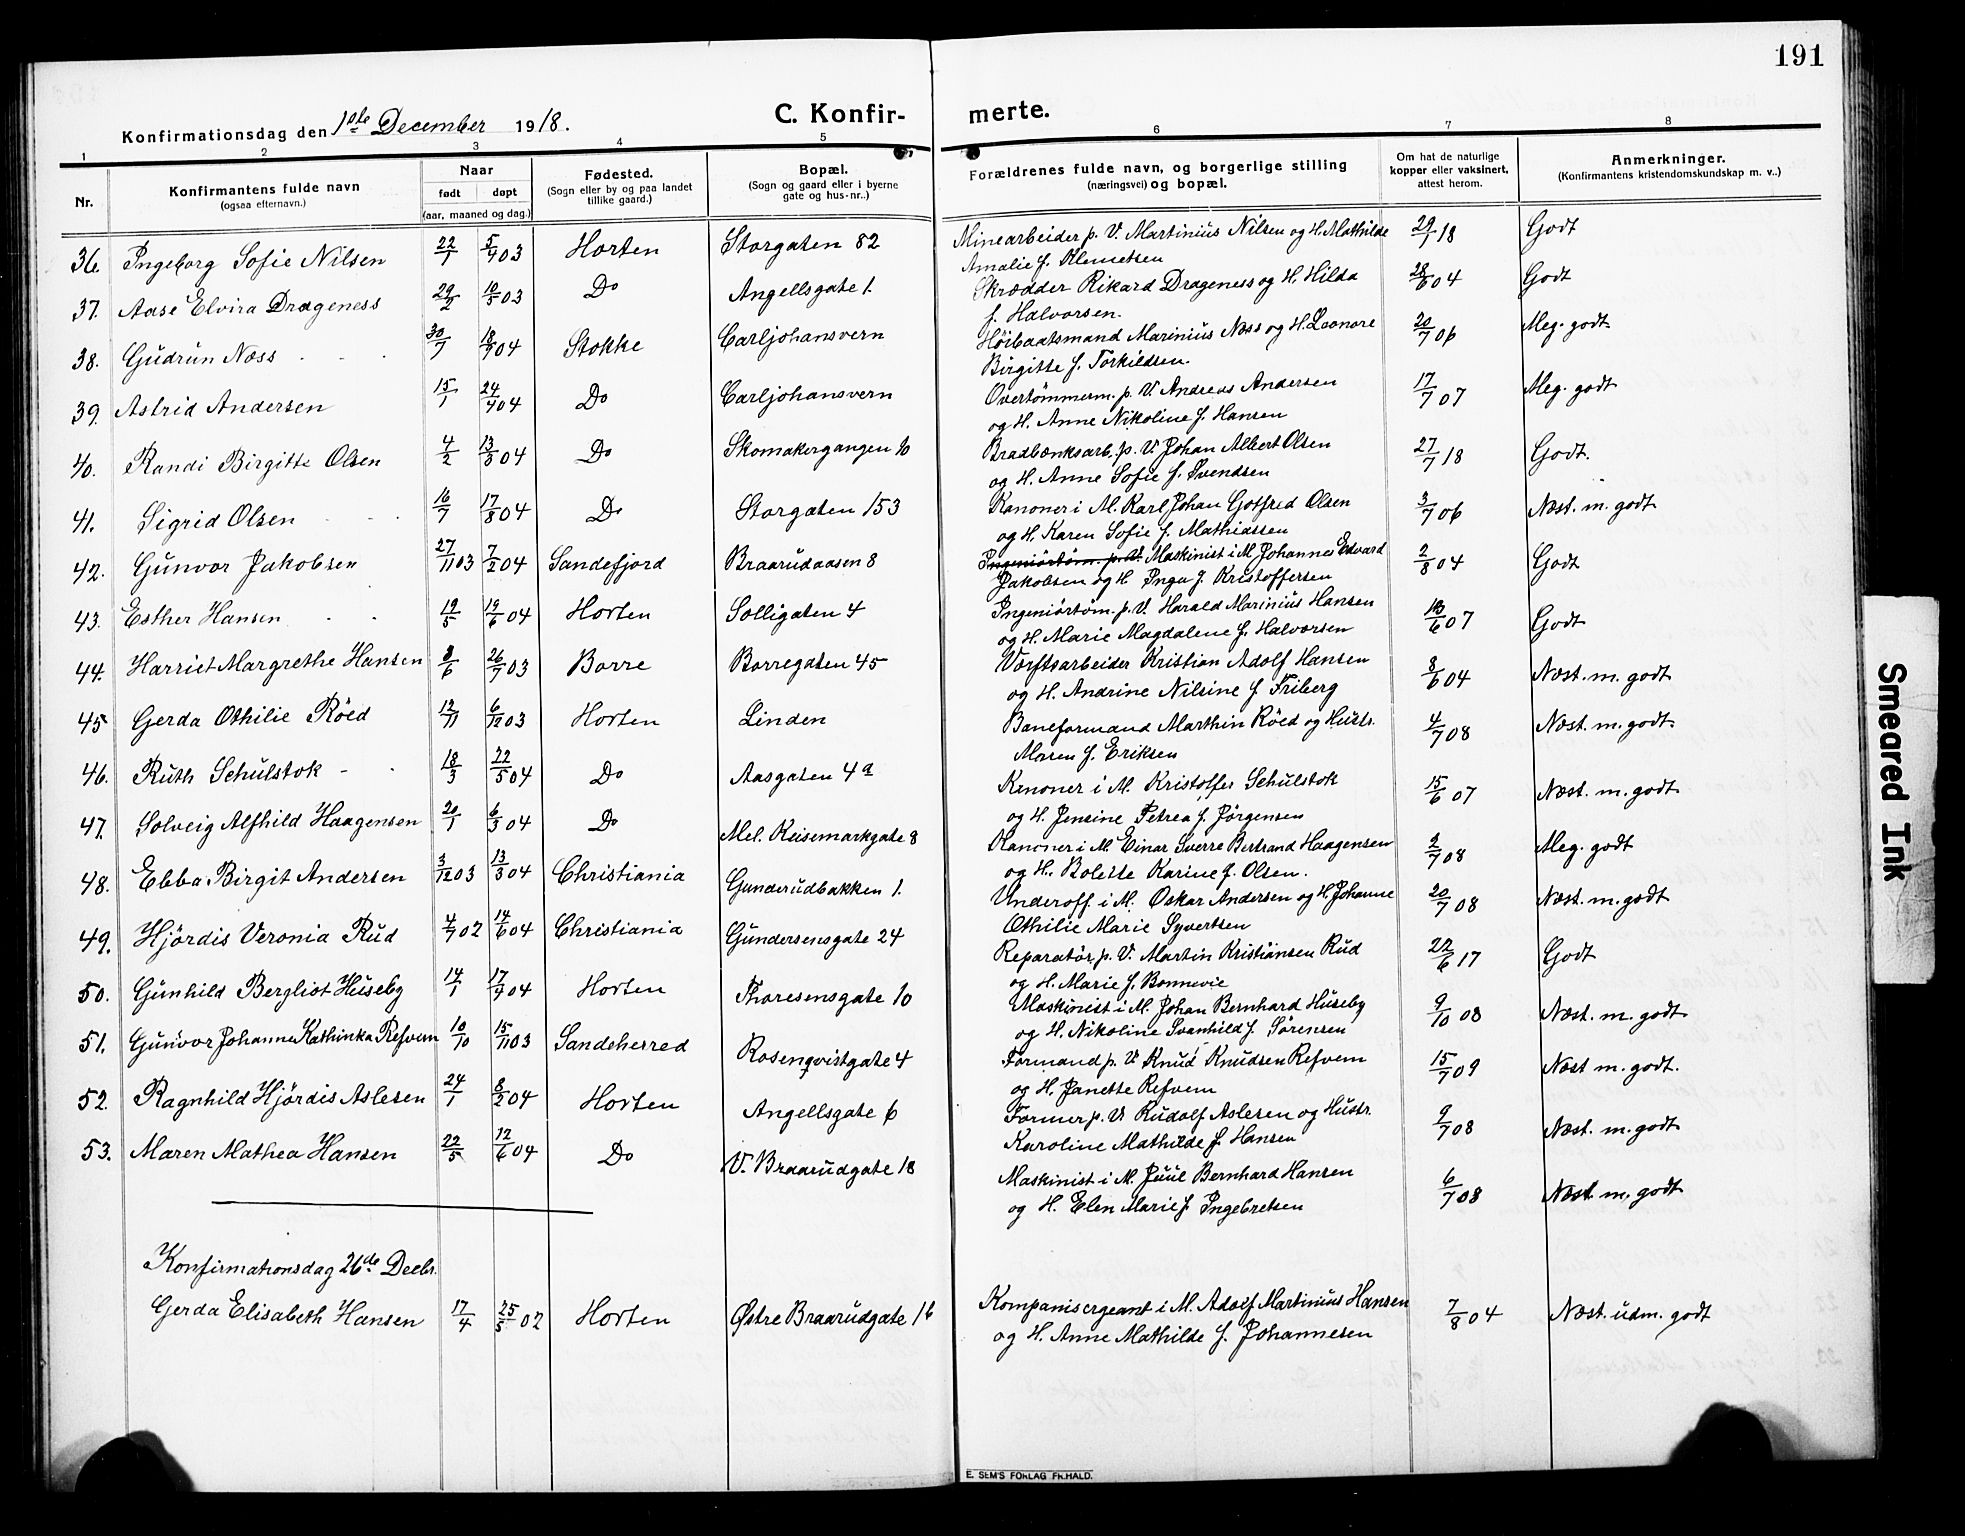 191
Konfirmationsdag den 1ste December 1918.
C. Konfir-
merte.
1 2 3 4 5 6 7 8
Nr.
Konfirmantens fulde navn
(ogsaa efternavn.)
Naar
født døpt
(aar, maaned og dag.)
Fødested.
(Sogn eller by og paa landet
tillike gaard.)
Bopæl.
(Sogn og gaard eller i byerne
gate og hus-nr..)
Forældrenes fulde navn, og borgerlige stilling
(næringsvei) og bopæl.
Om hat de naturlige
kopper eller vaksinert,
attest herom.
Anmerkninger.
(Konfirmantens kristendomskundskap m. v..)
36. Ingeborg Sofie Nilsen 22/1 5/4 03 Horten Storgaten 82 Minearbeider p. V. Martinius Nilsen og H. Mathilde 29/1 18 Godt
Amalie f. Klemetsen
37. Aase Elvira Drageness 29/2 10/5 03 Do Angellsgate 1. Skrædder Rikard Drageness og H. Hilda 28/6 04 Godt
f. Halvorsen.
38. Gudrun Næss 30/7 18/9 04 Stokke Carljohansvern Hørbaatsmand Marinius Næss og H. Leonore 20/7 06 Meg. godt
Birgitte f. Torkildsen.
39. Astrid Andersen 15/1 24/4 04 Do Carljohansvern Overtømmerm. p. V. Andreas Andersen 17/7 07 Meg. godt
og H. Anne Nikoline f. Hansen
40. Randi Birgitte Olsen 4/2 13/3 04 Do Skomakergangen 10 Bradbænksarb. p. V. Johan Albert Olsen 27/7 18 Godt.
og H. Anne Sofie f. Svendsen
41. Sigrid Olsen 16/7 17/8 04 Do Storgaten 153 Kanoner i M. Karl Johan Gotfred Olsen 3/7 06 Næst. m. godt
og H. Karen Sofie f. Mathiassen
42. Gunvor Jakobsen 27/11 03 7/2 04 Sandefjord Braarudaasen 8 Ingeniørtøm. p. V. Maskinist i M. Johannes Edvard 2/8 04 Godt
Jakobsen og H. Inga f. Kristoffersen
43. Esther Hansen 19/5 19/6 04 Horten Solligaten 4 Ingeniørtøm. p. V. Harald Marinius Hansen 18/6 07 Godt
og H. Marie Magdalene f. Halvorsen
44. Harriet Margrethe Hansen 8/6 26/7 03 Borre Borregaten 45 Værftsarbeider Kristian Adolf Hansen 8/6 04 Næst. m. godt
og H. Andrine Nilsine f. Friberg
45 Gerda Othilie Röed 12/11 6/12 03 Horten Linden Baneformand Marthin Röed og Hustr. 4/7 08 Næst. m. godt.
Maren f. Eriksen
46. Ruth Schulstok 18/3 22/5 04 Do Aasgaten 4a Kanoner i M. Kristoffer Schulstok 15/6 07 Næst. m. godt
og H. Jensine Petrea f. Jørgensen
47. Solveig Alfhild Haagensen 20/1 6/3 04 Do Mel. Keisemarkgate 8 Kanoner i M. Einar Sverre Bertrand Haagensen 2/7 08 Meg. godt
og H. Bolette Karine f. Olsen.
48. Ebba Birgit Andersen 3/12 03 13/3 04 Christiania Gunerudbakken 1. Underoff. i M. Oskar Andersen og H. Johanne 20/7 08 Næst. m. godt
Othilie Marie Syvertsen
49. Hjördis Veronia Rud 4/7 02 14/6 04 Christiania Gundersensgate 24 Reparatör p. V. Martin Kristiansen Rud 22/6 17 Godt
og H. Marie f. Bonnevie
50. Gunhild Bergliot Huseby 14/1 17/4 04 Horten Thoresensgate 10 Maskinist i M. Johan Bernhard Huseby 9/10 08 Næst. m. godt
og H. Nikoline Svanhild f. Sörensen
51. Gunvor Johanne Kathinka Refvem 10/10 15/11 03 Sandeherred Rosenqvistgate 4 Formand p. V. Knud Knudsen Refvem 15/7 09 Næst m. godt.
og H. Janette Refvem
52. Ragnhild Hjördis Aslesen 24/1 8/2 04 Horten Angellsgate 6 Former p. V. Rudolf Aslesen og Hustr. 9/7 08 Næst. m. godt
Karoline Mathilde f. Hansen
53. Maren Mathea Hansen 22/5 12/6 04 Do V. Braarudgate 18 Maskinist i M. Juul Bernhard Hansen 6/7 08 Næst. m. godt
og H. Elen Marie f. Ingebretsen
Konfirmationsdag 26de Decbr.
Gerda Elisabeth Hansen 17/4 25/5 02 Horten Østre Braarudgate 16 Kompanisergeant i M. Adolf Martinius Hansen 7/8 04 Næst. udm. godt
og H. Anne Mathilde f. Johannesen
E. SEM'S FORLAG FR.HALD.
Smeared Ink